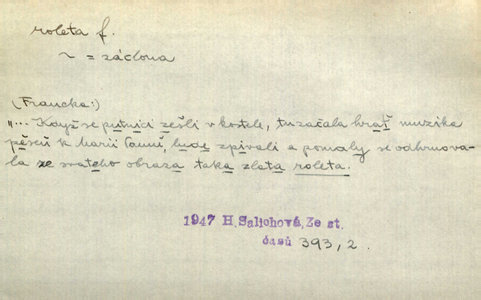 roleta f.
~ = záclona
(Francka:)
"... Když se putnici zešli v kostele, tu začala hrať muzika
pěsňu k Marii Panně, ludé zpívali a pomaly se odhrnova-
la ze svateho obraza taka zlata roleta.
1947 H. Salichová, Ze st.
časů 393, 2.